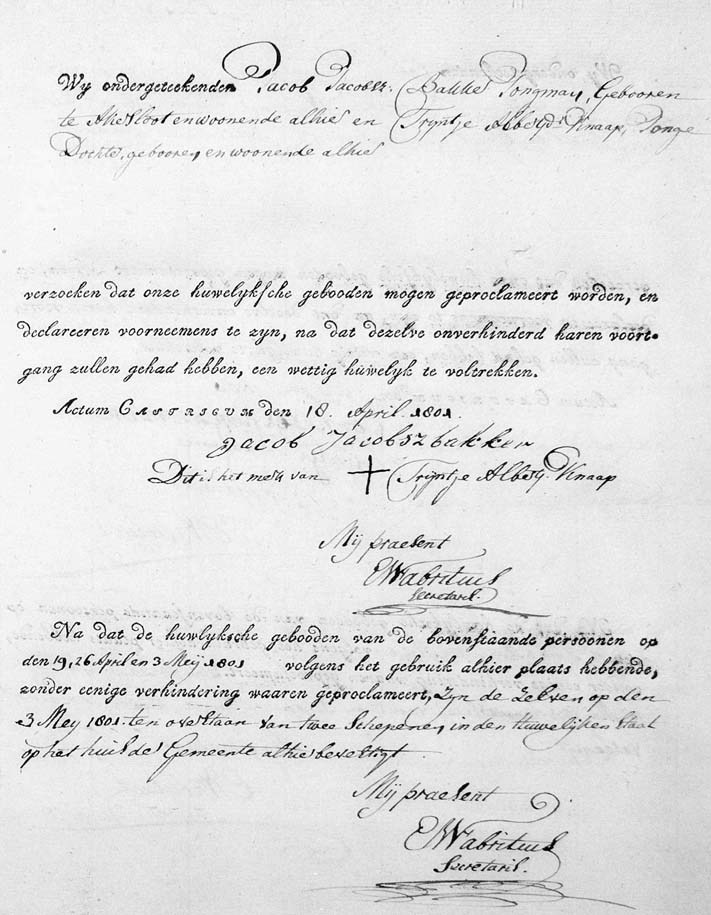 Wy ondergeteekenden Jacob Jacobsz: Bakker Jongman, Gebooren
te Akersloot en woonende alhier en Trijntje Albertsdr Knaap, Jonge
Dochter, gebooren, en woonende alhier
verzoeken dat onze huwelyksche gebooden mogen geproclameert worden, en
declareeren voorneemens te zyn, na dat dezelve onverhinderd haren voort-
gang zullen gehad hebben, een wettig huwelyk te voltrekken.
Actum CASTRICUM den 18. April. 1801.
Jacob Jacobsz bakker
Dit is het merk van + Trijntje Alberts. Knaap
Mij praesent
Secretaris.
Na dat de huwlyksche gebooden van de bovenstaande persoonen op
den 19, 26 April en 3 Meij 1801 volgens het gebruik alhier plaats hebbende,
zonder eenige verhindering waaren geproclameert, Zyn de Zelven op den
3 Mey 1801. ten overstaan van twee Schepenen, in den Huwelijken Staat
op het huis der Gemeente alhier bevestigt
Mij praesent
Secretaris.